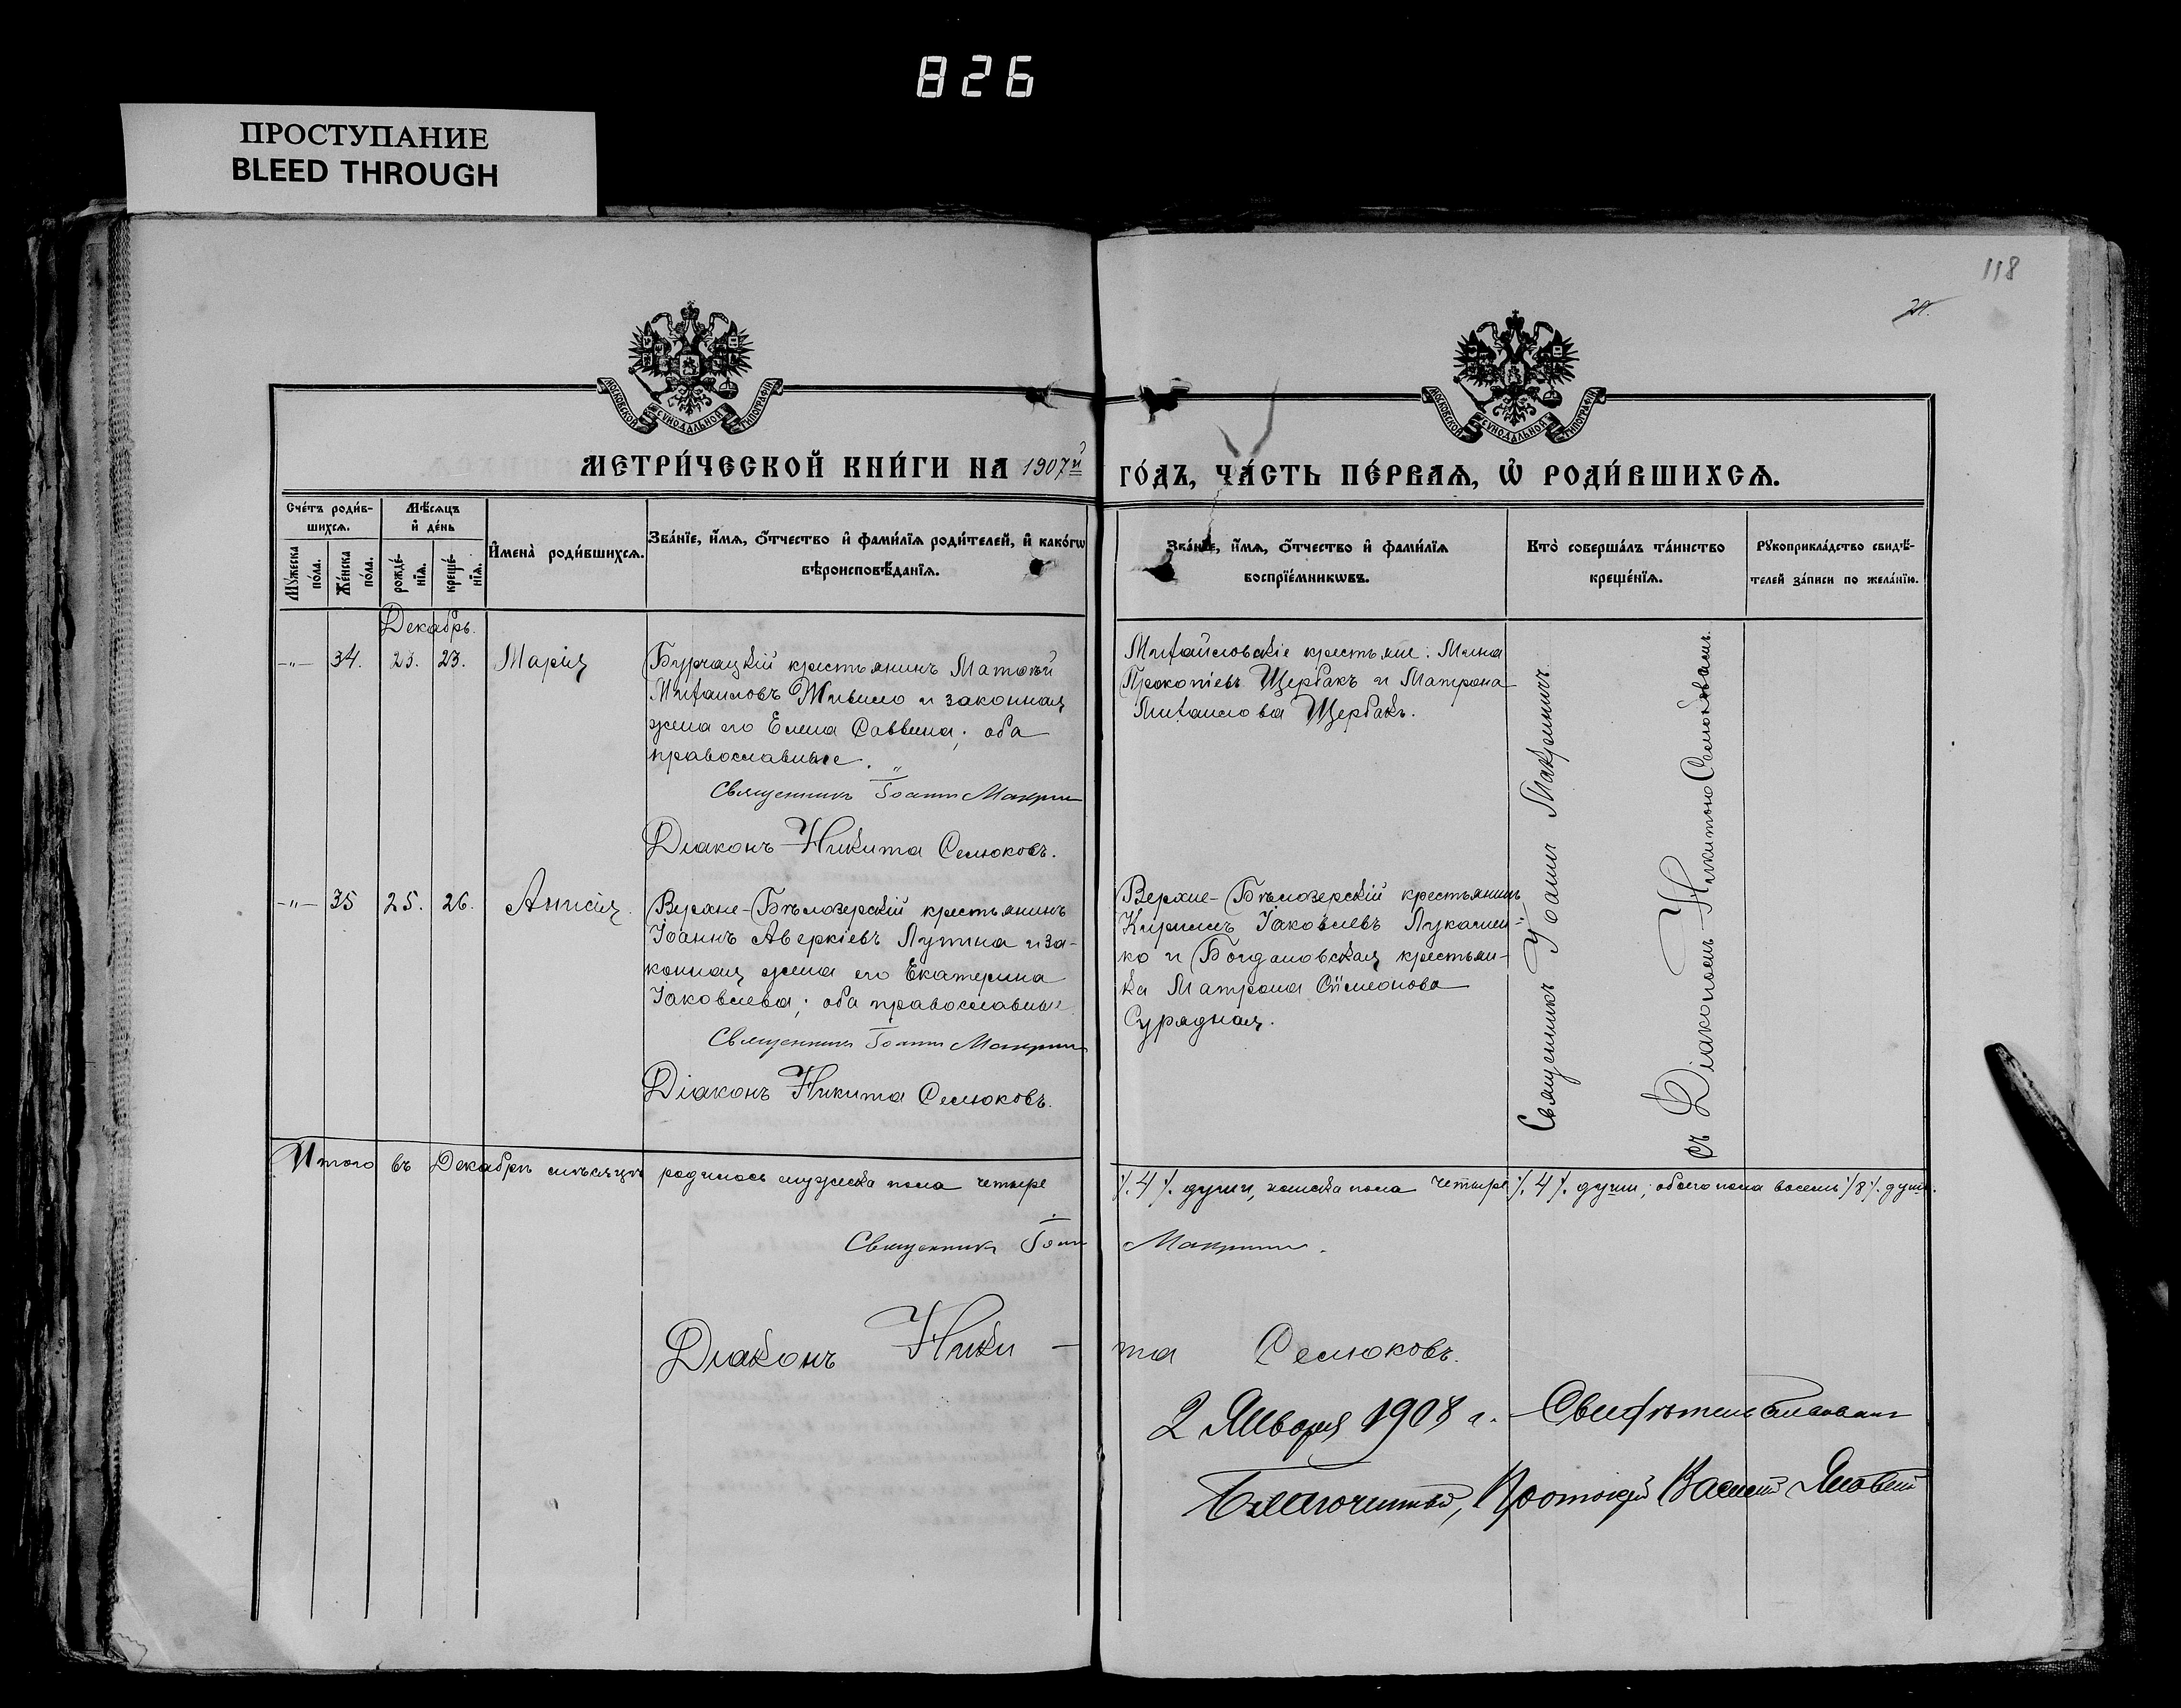 826
ПРОСТУПАНИЕ
BLEED THROUGH
118
МОСКОВСКОЙ СѴНОДАЛЬНОЙ ТИПОГРАФІИ
МОСКОВСКОЙ СѴНОДАЛЬНОЙ ТИПОГРАФІИ
МЕТРИ́ЧЕСКОЙ КНИ́ГИ НА 1907й ГО́ДЪ, ЧА́СТЬ ПЕ́РВАѦ, Ѡ҆ РОДИ́ВШИХСѦ.
Сче́тъ роди́в-
шихсѧ.
Мꙋ́жеска по́ла.
Же́нска по́ла.
Мѣ́сѧцъ
и҆ де́нь
рожде́-
нїѧ.
креще́-
нїѧ.
И҆мена̀ роди́вшихсѧ.
Зва́нїе, и҆́мѧ, ѻ҆́тчество и҆ фами́лїѧ роди́телей, и҆ како́гѡ
вѣроисповѣ́данїѧ.
Зва́нїе, и҆́мѧ, ѻ҆́тчество и҆ фами́лїѧ
воспрїе́мникѡвъ.
Кто̀ соверша́лъ та́инство
креще́нїѧ.
Рꙋкоприкла́дство свидѣ́-
телей за́писи по жела́нїю.
Декабрь.
-"- 34. 23. 23. Марія
Бурчацкій крестьянинъ Матѳей
Михаиловъ Живило и законная
жена его Елена Саввина; оба
православные.
Священникъ Іоаннъ Макрин
Діаконъ Никита Селюковъ.
Михайловскіе крестьяне: Мина
Прокопіевъ Щербакъ и Матрона
Михаилова Щербакъ.
-"- 35 25. 26. Анисія.
Верхне-Бѣлозерскій крестьянинъ
Іоаннъ Аверкіевъ Лупина и за-
конная жена его Екатерина
Іаковлева; оба православные.
Священникъ Іоаннъ Макрин
Діаконъ Никита Селюковъ.
Верхне-Бѣлозерскій крестьянинъ
Кириллъ Іаковлевъ Лукашен-
ко и Богдановская крестьян-
ка Матрона Сѵмеонова
Сурядная.
Священникъ Іоаннъ
съ Діакономъ Никитою Селюковымъ.
Итого въ Декабрѣ мѣсяцѣ родилось мужеска пола четыре
/. 4 /. души, женска пола четыре /. 4 /. души; обоего пола восемь /8/. душъ.
Священникъ Іоан Макрин.
Діаконъ Ники-
та Селюковъ.
2 Января 1908 г. Свидѣтельствовалъ
Благочинный, Протоіерей Василій